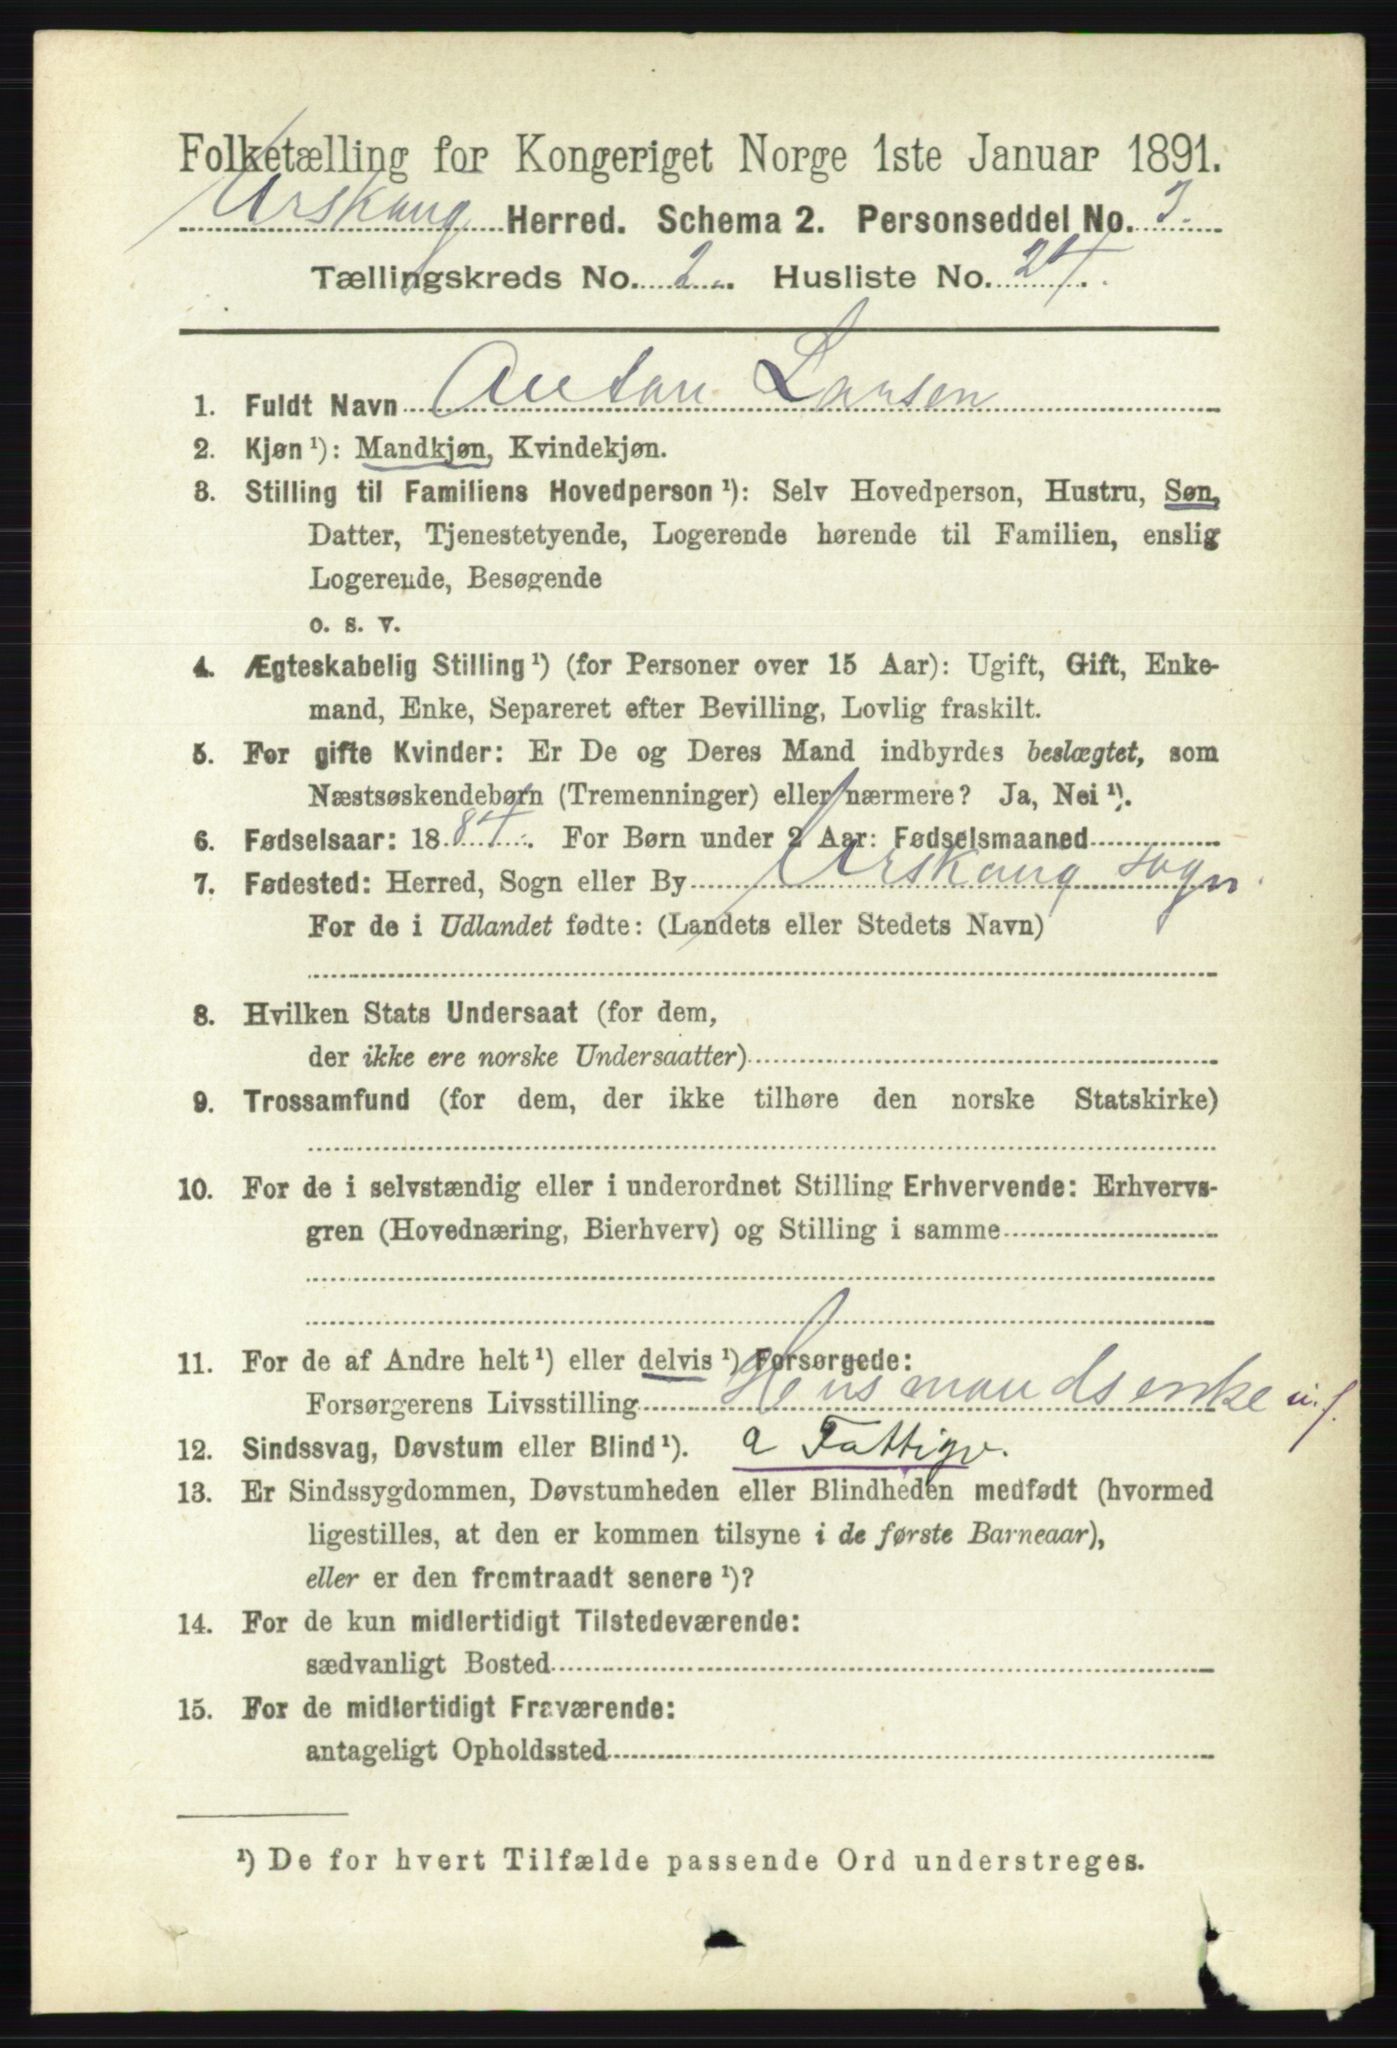 Folketælling for Kongeriget Norge 1ste Januar 1891.
Urskoug Herred. Schema 2. Personseddel No. 3.
Tællingskreds No. 2. Husliste No. 24.
1. Fuldt Navn Anton Larsen
2. Kjøn ¹): Mandkjøn, Kvindekjøn.
3. Stilling til Familiens Hovedperson ¹): Selv Hovedperson, Hustru, Søn,
Datter, Tjenestetyende, Logerende hørende til Familien, enslig
Logerende, Besøgende
o. s. v.
4. Ægteskabelig Stilling ¹) (for Personer over 15 Aar): Ugift, Gift, Enke-
mand, Enke, Separeret efter Bevilling, Lovlig fraskilt.
5. For gifte Kvinder: Er De og Deres Mand indbyrdes beslægtet, som
Næstsøskendebørn (Tremenninger) eller nærmere? Ja, Nei ¹).
6. Fødselsaar: 1884. For Børn under 2 Aar: Fødselsmaaned
7. Fødested: Herred, Sogn eller By Urskoug sogn.
For de i Udlandet fødte: (Landets eller Stedets Navn)
8. Hvilken Stats Undersaat (for dem,
der ikke ere norske Undersaatter)
9. Trossamfund (for dem, der ikke tilhøre den norske Statskirke)
10. For de i selvstændig eller i underordnet Stilling Erhvervende: Erhvervs-
gren (Hovednæring, Bierhverv) og Stilling i samme
11. For de af Andre helt ¹) eller delvis ¹) Forsørgede:
Forsørgerens Livsstilling Husmandsenke u. f.
12. Sindssvag, Døvstum eller Blind ¹). a Fattigv.
13. Er Sindssygdommen, Døvstumheden eller Blindheden medfødt (hvormed
ligestilles, at den er kommen tilsyne i de første Barneaar),
eller er den fremtraadt senere ¹)?
14. For de kun midlertidigt Tilstedeværende:
sædvanligt Bosted
15. For de midlertidigt Fraværende:
antageligt Opholdssted
¹) De for hvert Tilfælde passende Ord understreges.